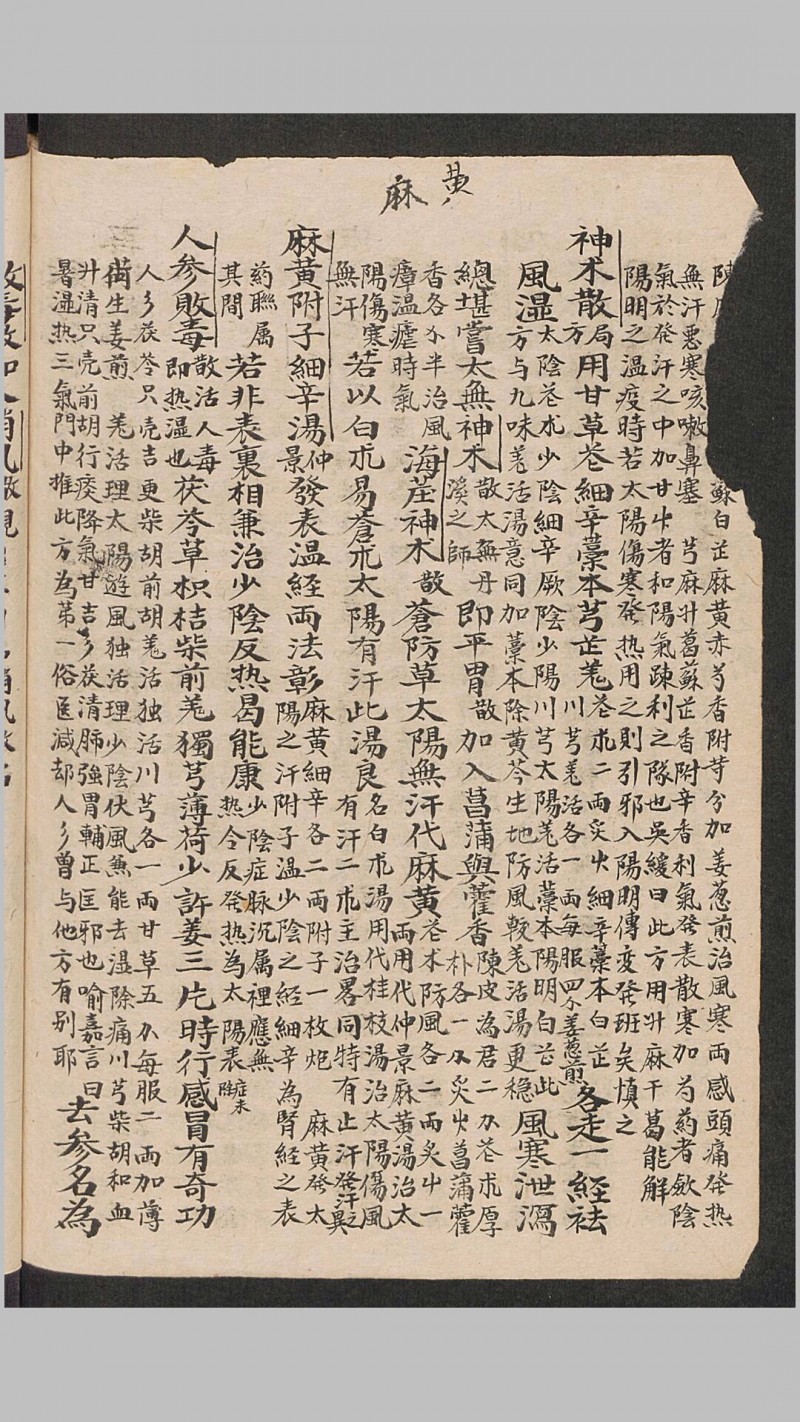 黄
麻
蘇白芷麻黄赤芍香附芽分加姜葱煎治風寒両感頭痛發热
無汗惡寒咳嗽鼻塞　芎麻升葛蘇芷香附辛香利氣發表散寒加芍药者斂陰
氣於發汗之中加甘艸者和陽氣踈利之隊也吳綬曰此方用升麻干葛能解
陽明之温疫時若太陽傷寒發热用之則引邪入陽明傳变發班矣慎之
神朮散局方用甘草蒼細辛藁本芎芷羗蒼朮二両炙艸細辛藁本白芷川芎羗活各一両每服四分姜葱煎各走一経袪
風湿太陰蒼朮少陰細辛厥陰少陽川芎太陽羗活藁本陽明白芷此方与九味羗活湯意同加藁本除黄芩生地防風較羗活湯更穩風寒泄瀉
總堪嘗太無神朮散太無丹溪之師即平胃散加入菖蒲與藿香陳皮為君二刃蒼朮厚朴各一刃炙艸菖蒲藿
香各刃半治風瘴温瘧時氣海𦽦神朮散蒼防草太陽無汗代麻黄蒼朮防風各二両炙屮一両用代仲景麻黄湯治太
陽傷寒無汗若以白朮易蒼朮太陽有汗此湯良名白朮湯用代桂枝湯治太陽傷風有汗二朮主治畧同特有止汗發汗之異
麻黄附子細辛湯仲景發表温経両法彰麻黄細辛各二両附子一枚炮　麻黄發太陽之汗附子温少陰之経細辛為腎経之表
药聯属其間若非表裏相兼治少陰反热曷能康少陰症脉沉属裡應無热今反發热為太陽表症未除
人参敗毒散活人毒即热湿也茯苓草枳桔柴前羗獨芎薄荷少許姜三片時行感冒有奇功
人彡茯苓只壳吉更柴胡前胡羗活独活川芎各一両甘草五刃每服二両加薄
荷生姜煎　羗活理太陽遊風独活理少陰伏風兼能去湿除痛川芎柴胡和血
升清只壳前胡行痰降氣甘吉彡茯清肺強胃輔正匡邪也喻嘉言曰
暑湿热三氣門中推此方為苐一俗医減却人彡曾与他方有别耶去参名為